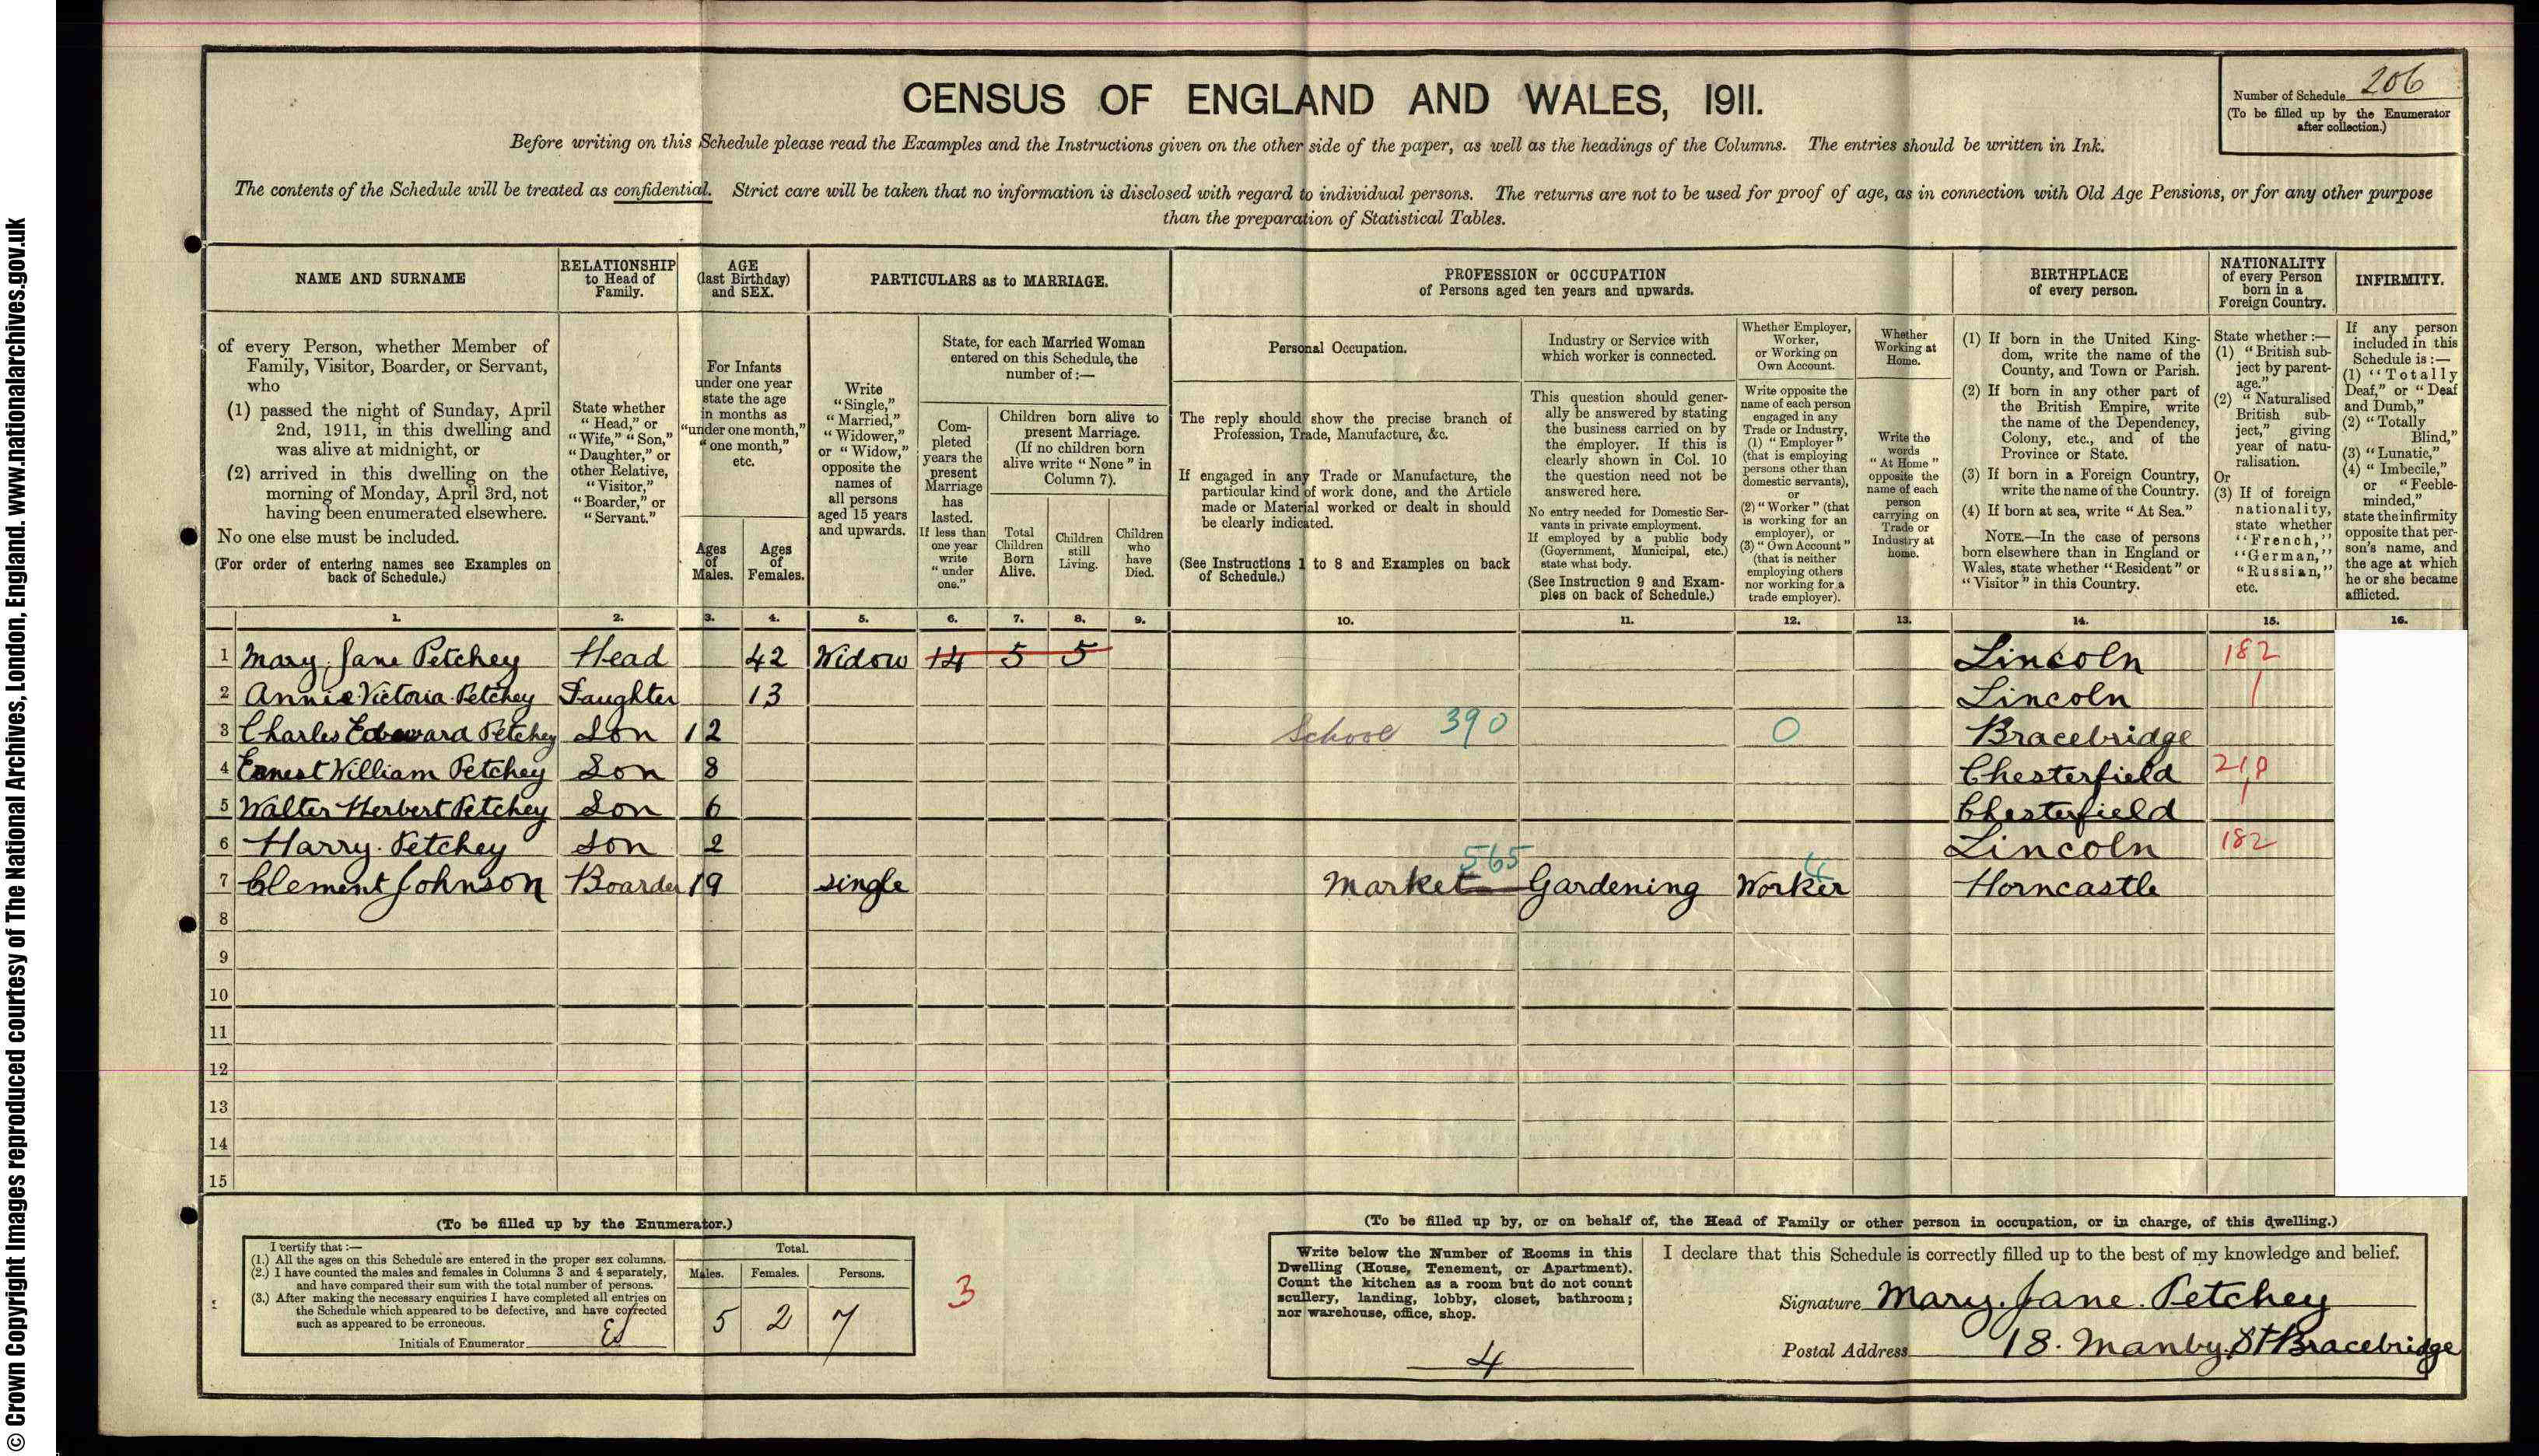 © Crown Copyright Images reproduced courtesy of The National Archives, London, England. www.nationalarchives.gov.uk
CENSUS OF ENGLAND AND WALES, 1911.
Number of Schedule 206
(To be filled up by the Enumerator
after collection.)
Before writing on this Schedule please read the Examples and the Instructions given on the other side of the paper, as well as the headings of the Columns. The entries should be written in Ink.
The contents of the Schedule will be treated as confidential. Strict care will be taken that no information is disclosed with regard to individual persons. The returns are not to be used for proof of age, as in connection with Old Age Pensions, or for any other purpose
than the preparation of Statistical Tables.
NAME AND SURNAME
of every Person, whether Member of
Family, Visitor, Boarder, or Servant,
who
(1) passed the night of Sunday, April
2nd, 1911, in this dwelling and
was alive at midnight, or
(2) arrived in this dwelling on the
morning of Monday, April 3rd, not
having been enumerated elsewhere.
No one else must be included.
(For order of entering names see Examples on
back of Schedule.)
RELATIONSHIP
to Head of
Family.
State whether
"Head," or
"Wife," "Son,"
"Daughter," or
other Relative,
"Visitor,"
"Boarder," or
"Servant."
AGE
(last Birthday)
and SEX.
For Infants
under one year
state the age
in months as
"under one month,"
"one month,"
etc.
Ages
of
Males.
Ages
of
Females.
PARTICULARS as to MARRIAGE.
Write
"Single,"
"Married,"
"Widower,"
or "Widow,"
opposite the
names of
all persons
aged 15 years
and upwards.
State, for each Married Woman
entered on this Schedule, the
number of:—
Com-
pleted
years the
present
Marriage
has
lasted.
If less than
one year
write
"under
one."
Children born alive to
present Marriage.
(If no children born
alive write "None" in
Column 7).
Total
Children
Born
Alive.
Children
still
Living.
Children
who
have
Died.
PROFESSION or OCCUPATION
of Persons aged ten years and upwards.
Personal Occupation.
The reply should show the precise branch of
Profession, Trade, Manufacture, &c.
If engaged in any Trade or Manufacture, the
particular kind of work done, and the Article
made or Material worked or dealt in should
be clearly indicated.
(See Instructions 1 to 8 and Examples on back
of Schedule.)
Industry or Service with
which worker is connected.
This question should gener-
ally be answered by stating
the business carried on by
the employer. If this is
clearly shown in Col. 10
the question need not be
answered here.
No entry needed for Domestic Ser-
vants in private employment.
If employed by a public body
(Government, Municipal, etc.)
state what body.
(See Instruction 9 and Exam-
ples on back of Schedule.)
Whether Employer,
Worker,
or Working on
Own Account.
Write opposite the
name of each person
engaged in any
Trade or Industry,
(1) "Employer"
(that is employing
persons other than
domestic servants),
or
(2) "Worker" (that
is working for an
employer), or
(3) "Own Account"
(that is neither
employing others
nor working for a
trade employer).
Whether
Working at
Home.
Write the
words
"At Home"
opposite the
name of each
person
carrying on
Trade or
Industry at
home.
BIRTHPLACE
of every person.
(1) If born in the United King-
dom, write the name of the
County, and Town or Parish.
(2) If born in any other part of
the British Empire, write
the name of the Dependency,
Colony, etc., and of the
Province or State.
(3) If born in a Foreign Country,
write the name of the Country.
(4) If born at sea, write "At Sea."
NOTE.—In the case of persons
born elsewhere than in England or
Wales, state whether "Resident" or
"Visitor" in this Country.
NATIONALITY
of every Person
born in a
Foreign Country.
State whether:—
(1) "British sub-
ject by parent-
age."
(2) "Naturalised
British sub-
ject," giving
year of natu-
ralisation.
Or
(3) If of foreign
nationality,
state whether
"French,"
"German,"
"Russian,"
etc.
INFIRMITY.
If any person
included in this
Schedule is:—
(1) "Totally
Deaf," or "Deaf
and Dumb,"
(2) "Totally
Blind,"
(3) "Lunatic,"
(4) "Imbecile,"
or "Feeble-
minded,"
state the infirmity
opposite that per-
son's name, and
the age at which
he or she became
afflicted.
1. 2. 3. 4. 5. 6. 7. 8. 9. 10. 11. 12. 13. 14. 15. 16.
1 Mary Jane Petchey Head 42 Widow 14 5 5 Lincoln 182
2 Annie Victoria Petchey Daughter 13 Lincoln
3 Charles Edward Petchey Son 12 School 390 0 Bracebridge
4 Ernest William Petchey Son 8 Chesterfield
5 Walter Herbert Petchey Son 6 Chesterfield
6 Harry Petchey Son 2 Lincoln 182
7 Clement Johnson Boarder 19 Single Market 565 Gardening Worker 4 Horncastle
8
9
10
11
12
13
14
15
(To be filled up by the Enumerator.)
I certify that:—
(1.) All the ages on this Schedule are entered in the proper sex columns.
(2.) I have counted the males and females in Columns 3 and 4 separately,
and have compared their sum with the total number of persons.
(3.) After making the necessary enquiries I have completed all entries on
the Schedule which appeared to be defective, and have corrected
such as appeared to be erroneous.
Initials of Enumerator
Total.
Males. Females. Persons.
5 2 7
3
(To be filled up by, or on behalf of, the Head of Family or other person in occupation, or in charge, of this dwelling.)
Write below the Number of Rooms in this
Dwelling (House, Tenement, or Apartment).
Count the kitchen as a room but do not count
scullery, landing, lobby, closet, bathroom;
nor warehouse, office, shop.
4
I declare that this Schedule is correctly filled up to the best of my knowledge and belief.
Signature Mary Jane Petchey
Postal Address 18. Manby St Bracebridge